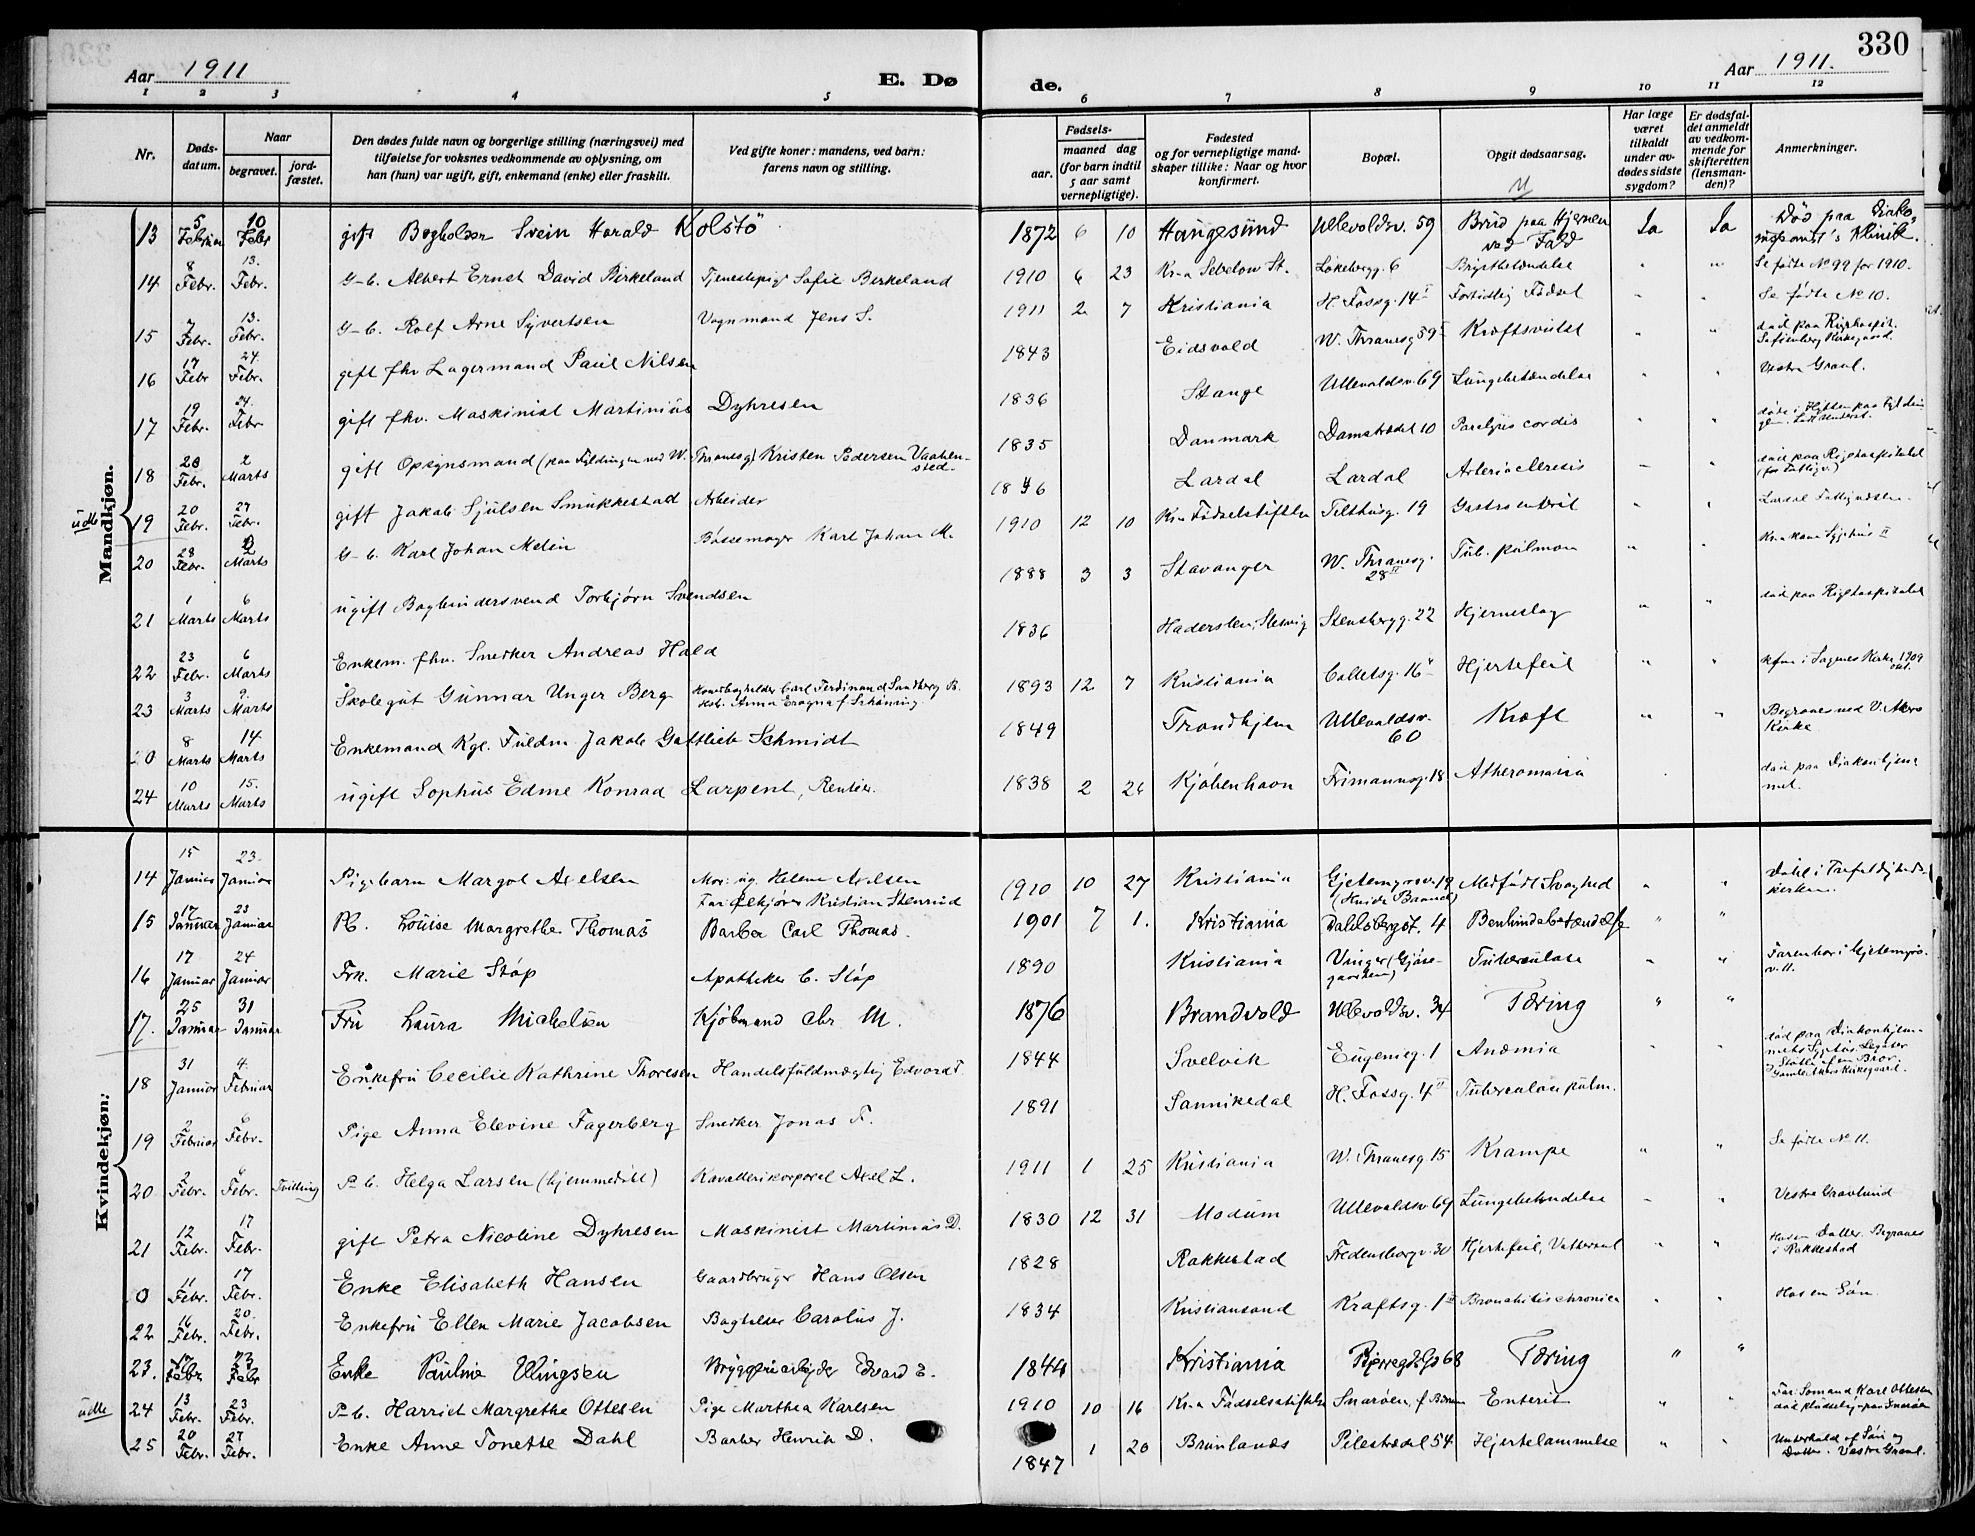 330
Aar 1911
E. Dø
de.
Aar 1911.
1 2 3 4 5 6 7 8 9 10 11 12
Nr.
Døds-
datum.
Naar
begravet.
jord-
fæstet.
Den dødes fulde navn og borgerlige stilling (næringsvei) med
tilføielse for voksnes vedkommende av oplysning, om
han (hun) var ugift, gift, enkemand (enke) eller fraskilt.
Ved gifte koner: mandens, ved barn:
farens navn og stilling.
Fødsels-
aar.
maaned dag
(for barn indtil
5 aar samt
vernepligtige).
Fødested
og for vernepligtige mand-
skaper tillike: Naar og hvor
konfirmert.
Bopæl.
Opgit dødsaarsag.
Har læge
været
tilkaldt
under av-
dødes sidste
sygdom?
Er dødsfal-
det anmeldt
av vedkom-
mende for
skifteretten
(lensman-
den)?
Anmerkninger.
Mandkjøn.
13 5 Februar 10 Febr gift Bogholder Svein Harald Kolstö 1872 6 10 Haugesund Ullevoldsv. 59 Brud paa Hjernen ved Fald Ja Ja Död paa
Klinik.
14 8 Febr. 13. Febr. G-b. Albert Ernst David Birkeland Tjenestepige Sofie Birkeland 1910 6 23 Kr.a Sebelow St. Løkebergg. 6 Brystbetændelse " " Se fødte No 99 for 1910.
15 7 Febr. 13. Febr. G-b. Rolf Arne Syvertsen Vognmand Jens S. 1911 2 7 Kristiania H. Fossg. 14 I Fortidlig Fødsel " " Se fødte No 10.
16 17 Febr 24. Febr. gift fhv Lagermand Paul Nilsen 1843 Eidsvold W. Thranesg 59 Kræftsvulst " " død paa Rigshospit.
Sofienberg Kirkegaard.
17 19 Febr. 24. Febr gift fhv. Maskinist Martinius Dyhresen 1836 Stange Ullevaldsv. 69 Lungebetændelse " " Vestre Gravl.
18 20 Febr. 2 Marts gift Opsynsmand (paa Fyldningen ved W. Thranesg) Kristen Pedersen 1835 Danmark Damstrædet 10 Paralysis cordis " "
udb. 19 20 Febr. 27 Febr. gift Jakob Sjulsen Smukkestad Arbeider 1846 Lardal Lardal " " død paa Rigshospitalet
20 28 Febr. 2 Marts G-b. Karl Johan Melin Bøssemager Karl Johan M. 1910 12 10 Kr.a Fødselstiftelse Telthusg. 19 " " Lardal
21 1 Marts 6 Marts ugift Bogbindersvend Torbjørn Svendsen 1888 3 3 Stavanger W. Thranesg. 28 II Tub. pulmon " " Kr.a kom. Sygehus II
22 23 Febr. 6 Marts Enkem. fhv. Snedker Andreas Hald 1836 Haderslev, Slesvig Stensbergg. 22 Hjerneslag " " død paa Rigshospitalet
23 3 Marts 9. Marts Skolegut Gunnar Unger Berg Hovedbogholder Carl Ferdinand Sandberg B.
1893 12 7 Kristiania Colletsg. 16 Hjertefeil " " kfm i Sagenes Kirke 1909 okt.
0 8 Marts 14 Marts Enkemand Kgl. Fuldm Jakob Gottlieb Schmidt 1849 Trondhjem Ullevaldsv. 60 Kræft " " Begraves ved V. Akers
Kirke
24 10 Marts 15. Marts ugift Sophus Edme Konrad Larpent, Rentier. 1838 2 26 Kjøbenhavn Frimannsg. 18 Atheromasia død paa Diakonhjem-
met.
Kvindekjøn:
14 15 Januar 23. Januar Pigebarn Margot Axelsen Mor: ug. Helene Axelsen
Far Ølkjører Kristian Stenrud 1910 10 27 Kristiania Gjetemyrsv. 19 Medfødt Svaghed " " Dahl i Trefoldigheds-
kirken.
15 17 Januar 23 Januar Pb. Louise Margrethe Thomas Barber Carl Thomas. 1901 7 1. Kristiania Dahlsbergst. 4 Benhindebetændelse " "
16 17 Januar 24 Januar Frk. Marie Støp Apotheker C. Støp 1890 Kristiania Vinger (Gjøse-
gaarden) Tuberculose " " Faren bor i Gjetemyrs-
v. 11.
17. 25 Januar 31 Januar Fru Laura Michelsen Kjöbmand Chr M. 1876 Brandvold Ullevoldsv. 34 Tæring " "
18 31 Januar 4. Februar Enkefru Cecilie Kathrine Thoresen Handelsfuldmægtig Edvard T. 1844 Svelvik Eugenieg. 1 Anæmia " " død paa Diakonhjem-
Gamle Akers Kirkegaard.
19 2 Februar 6 Febr. Pige Anna Elevine Fagerberg Snedker Jonas F. 1891 Sannikedal H. Fossg. 4 II Tuberculose pulm.
20 2 Febr. 6 Febr. Tvilling P-b. Helga Larsen (hjemmedøbt) Kavallerikorporal Axel L. 1911 1 25 Kristiania W. Thranesg 15 Krampe " " Se fødte No 11.
21 12 Febr. 17 Febr. gift Petra Nicoline Dyhresen Maskinist Martinius D. 1830 12 31 Modum Ullevaldsv 69 Lungebetændelse " " Vestre Gravlund
0 11 Febr. 17 Febr. Enke Elisabeth Hansen Gaardbruger Hans Olsen 1828 Rakkestad Fredensborgv. 30 Hjertefeil, Vattersot " " Hos en Datter. Begraves
i Rakkestad
22 16 Febr. 20. Febr. Enkefru Ellen Marie Jacobsen Bogholder Carolus J. 1834 Kristiansand Kraftsg. 1 II Bronchitis chronica " " Hos en Søn
23. 17 Febr 23 Febr Enke Pauline Ellingsen Bryggeriarbejder Edvard E. 1844 Kristiania 68 Tæring " "
udb. 24 13 Febr. 23 Febr. P-b. Harriet Margrethe Ottesen Pige Marthea Karlsen 1910 10 16 Kr.a Fødselsstiftelse Snarøen, f Bærum Enterit " " Far: Sømand Karl Ottesen
25 20 Febr. 27 Febr. Enke Anne Tonette Dahl Barber Henrik D. 1847 1 20 Brunlanæs Pilestrædet 54 Hjertelammelse " " Underhold af Søn og
Datter. Vestre Gravl.